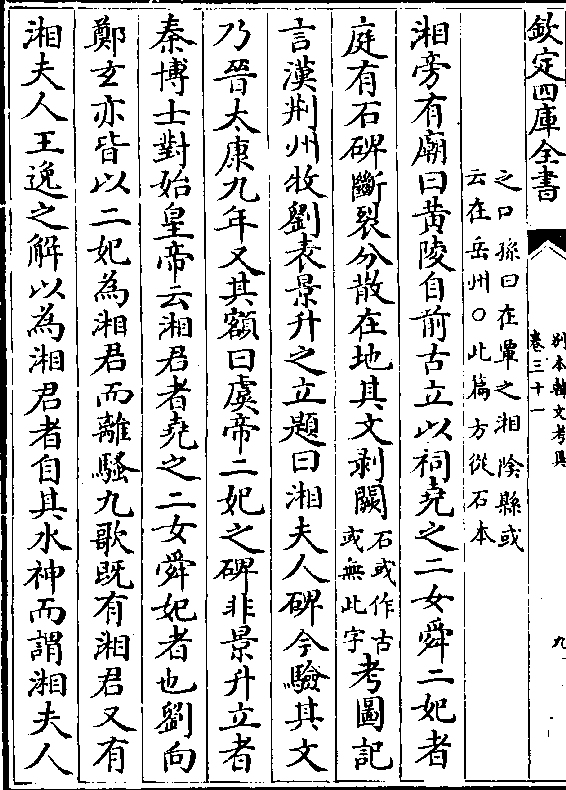 欽定四庫全書
別本韓文考異
卷三十一
九
之口孫曰在潭之湘陰縣或
云在岳州〇此篇方從石本
湘旁有廟曰黄陵自前古立以祠堯之二女舜二妃者
庭有石碑斷裂分散在地其文剥闕石或作古或無此字考圖記
言漢荆州牧劉表景升之立題曰湘夫人碑今驗其文
乃晉太康九年又其額曰虞帝二妃之碑非景升立者
秦博士對始皇帝云湘君者堯之二女舜妃者也劉向
鄭玄亦皆以二妃為湘君而離騷九歌既有湘君又有
湘夫人王逸之解以為湘君者自其水神而謂湘夫人